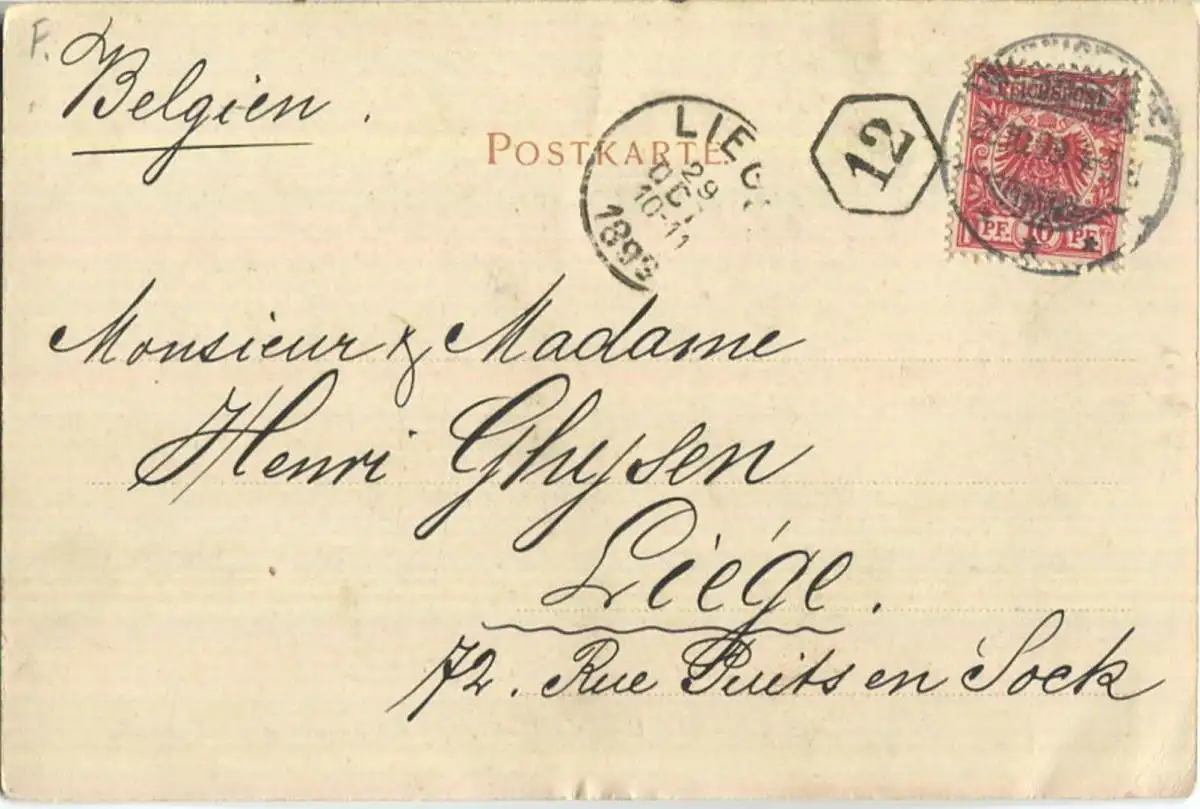 F.
Belgien.
POSTKARTE.
LIEG
29
OCT
10-11
12
REICHSPOST
PF. 10 PF.
Monsieur & Madame
Henri Ghysen
Liége.
72. Rue Puits en Sock